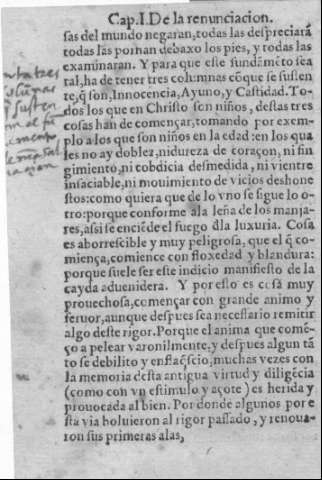 Cap. I. De la renunciacion.
sas del mundo negaran, todas las despreciará
todas las pornan debaxo los pies, y todas las
examinaran. Y para que este fundamẽto sea
tal, ha de tener tres columnas cõque se susten
te, q̃ son, Innocencia, Ayuno, y Castidad. To-
dos los que en Christo son niños, destas tres
cosas han de començar, tomando por exem-
plo a los que son niños en la edad: en los qua
les no ay doblez, ni dureza de coraçon, ni fin
gimiento, ni cobdicia desmedida, ni vientre
insaciable, ni mouimiento de vicios deshone
stos: como quiera que de lo vno se sigue lo o-
tro: porque conforme a la leña de los manja-
res, assi se enciẽde el fuego dla luxuria. Cosa
es aborrescible y muy peligrosa, que el q̃ co-
miença, comience con floxedad y blandura:
porque suele ser este indicio manifiesto de la
cayda aduenidera. Y por esso es cosa muy
prouechosa, començar con grande animo y
feruor, aunque despues sea necessario remitir
algo deste rigor. Porque el anima que comẽ-
ço a pelear varonilmente, y despues algun tã
to se debilito y enflaq̃scio, muchas vezes con
la memoria desta antigua virtud y diligẽcia
(como con vn estimulo y açote) es herida y
prouocada al bien. Por donde algunos por e
sta via boluieron al rigor passado, y renoua-
ron sus primeras alas,